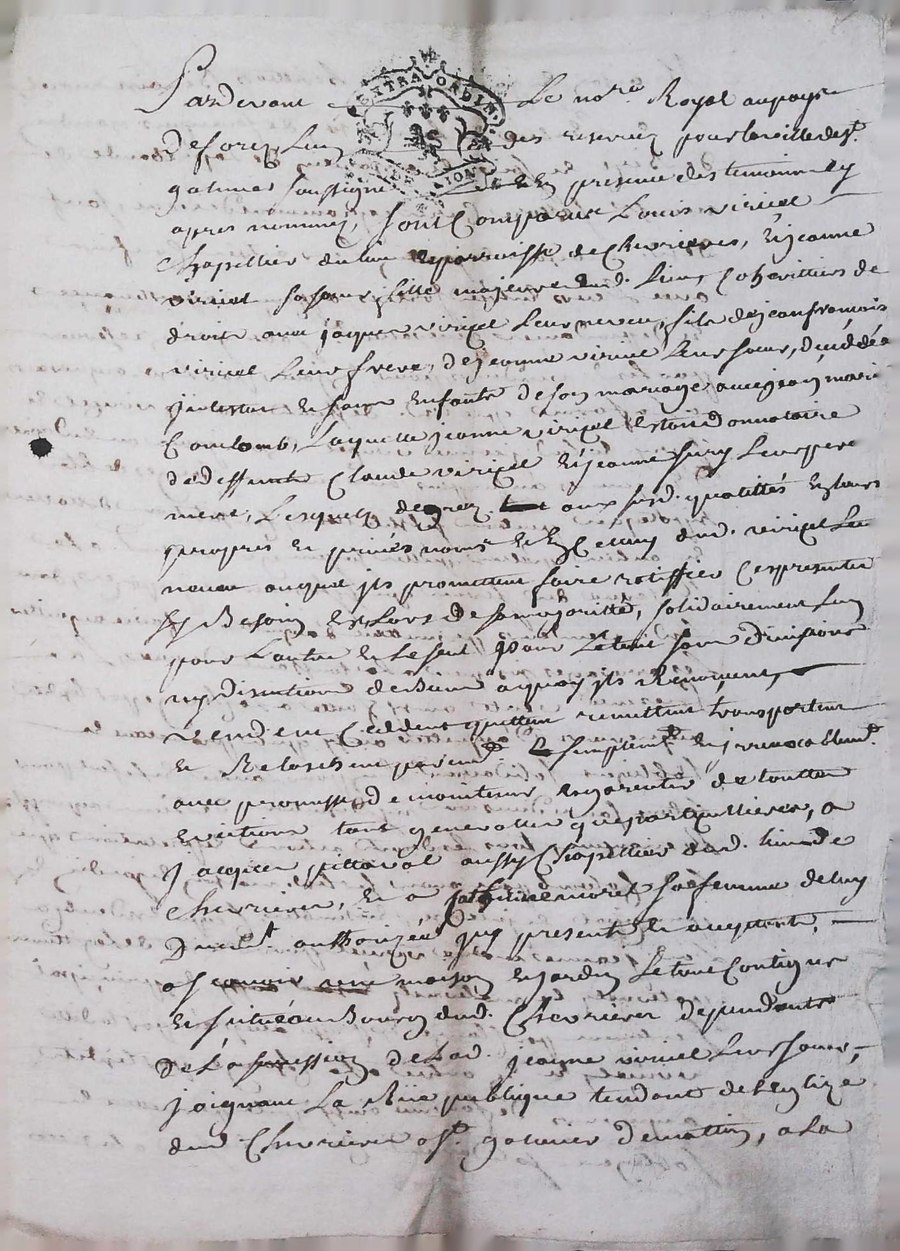 Pardevant Le no.re Royal aupays
deforez Lun des reservez pour la ville de st.
galmier soussigné et En presence des temoins Ey
apres nommez, sont Comparus Louis viricel
Chapellier du lieu Eparroisse de Chevrieres, Et jeanne
viricel sa soeur fille majeure dud. Lieu, Cohéritiers de
droits avec jaques viricel Leur neveu, fils dejeanfrancois
viricel Leur frere, dejeanne viricel Leur soeur, décédée
jntestat Et sans Enfants deson mariage avecjean marie
Coulomb, Laquelle jeanne viricel Etoit donnataire
de deffunts Claude viricel Etjeanne Leurs pere
mere, Lesquels degrez aux susd. qualittés Et Leurs
propres Et privés noms Et En Celuy dud. viricel Leur
neveu auquel jls promettent faire ratiffier Cesprésentes
sy Besoin Est Lors desamajoritté, solidairement Lun
pour Lautre Et Le seul pour Letout sans divisions
ny discution deBiens aquoy jls Renonçent,
vendent Ceddent quittent remettent transportent
Et Relaschent purem.t Et simplem.t Et jrrevocablem.t
avec promesse de maintenir Et garentir de touttes
Evictions tant generalles que particullieres, a
jacques pittaval aussy Chapellier dud. lieu de
Chevrieres, Et a morel sa femme deluy
Duem.t authorizée jcy presents Et acceptants,
ascavoir une maison Et jardin Letout Contigus
Et situé au Bourg dud. Chevrieres dependants
de La succession de Lad. jeanne viricel Leur soeur,
joignant La Rue publique tendant de Leglize
dud. Chevrieres a st. galmier dematin, a La
EXTRA ORDIN.